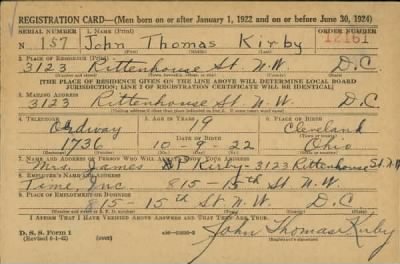 REGISTRATION CARD—(Men born on or after January 1, 1922 and on or before June 30, 1924)
SERIAL NUMBER 1. NAME (Print) ORDER NUMBER
N 157 John Thomas Kirby 12161
2. PLACE OF RESIDENCE (Print)
3123 Rittenhouse St. N.W. D.C
[THE PLACE OF RESIDENCE GIVEN ON THE LINE ABOVE WILL DETERMINE LOCAL BOARD
JURISDICTION; LINE 2 OF REGISTRATION CERTIFICATE WILL BE IDENTICAL]
3. MAILING ADDRESS
3123 Rittenhouse St. N.W. D.C
4. TELEPHONE 5. AGE IN YEARS 6. PLACE OF BIRTH
Ordway 19 Cleveland
DATE OF BIRTH
1736 10-9-22 Ohio
7. NAME AND ADDRESS OF PERSON WHO WILL ALWAYS KNOW YOUR ADDRESS
Mrs. James P Kirby-3123 Rittenhouse St. N.W.
8. EMPLOYER'S NAME AND ADDRESS
Time, Inc. 815-15th St N.W.
9. PLACE OF EMPLOYMENT OR BUSINESS
815-15th St N.W. D.C
I AFFIRM THAT I HAVE VERIFIED ABOVE ANSWERS AND THAT THEY ARE TRUE.
D. S. S. Form 1
John Thomas Kirby